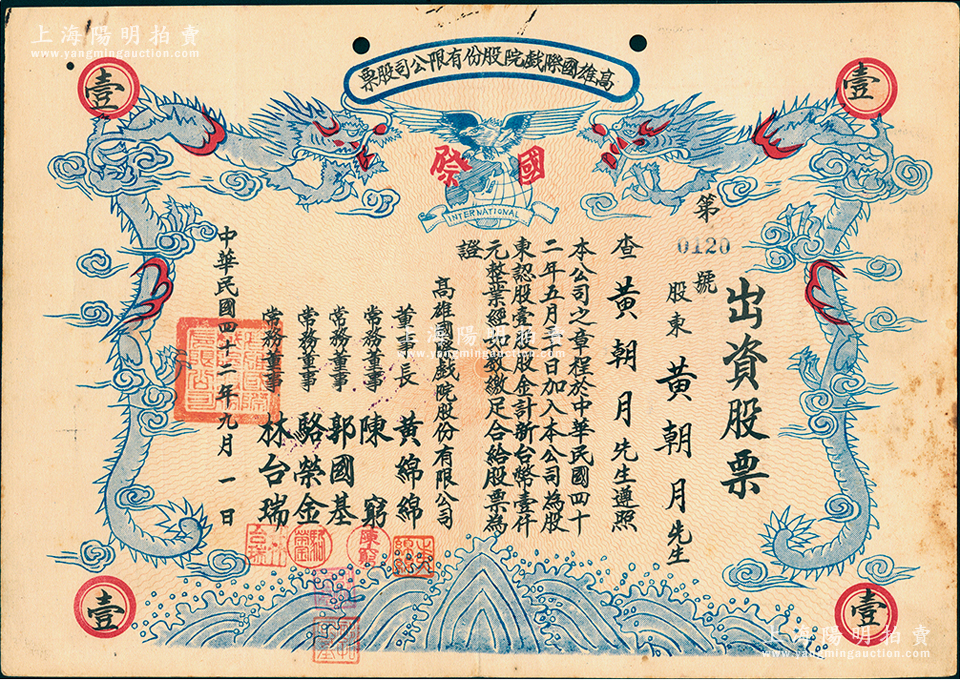 上海陽明拍賣
www.yangmingauction.com
高雄國際戲院股份有限公司股票
壹
壹
國際
INTERNATIONAL
出資股票
第0120號
股東 黃朝月先生
查黃朝月先生遵照
本公司之章程於中華民國四十
二年五月 日加入本公司為股
東認股壹股股金計新台幣壹仟
元整業經如數繳足合給股票為
證
高雄國際戲院股份有限公司
董事長 黃綿綿
常務董事 陳窮
常務董事 郭國基
常務董事 駱榮金
常務董事 林台瑞
中華民國四十二年九月一日
壹
壹
上海陽明拍賣
www.yangmingauction.com
上海陽明拍賣
www.yangmingauction.com